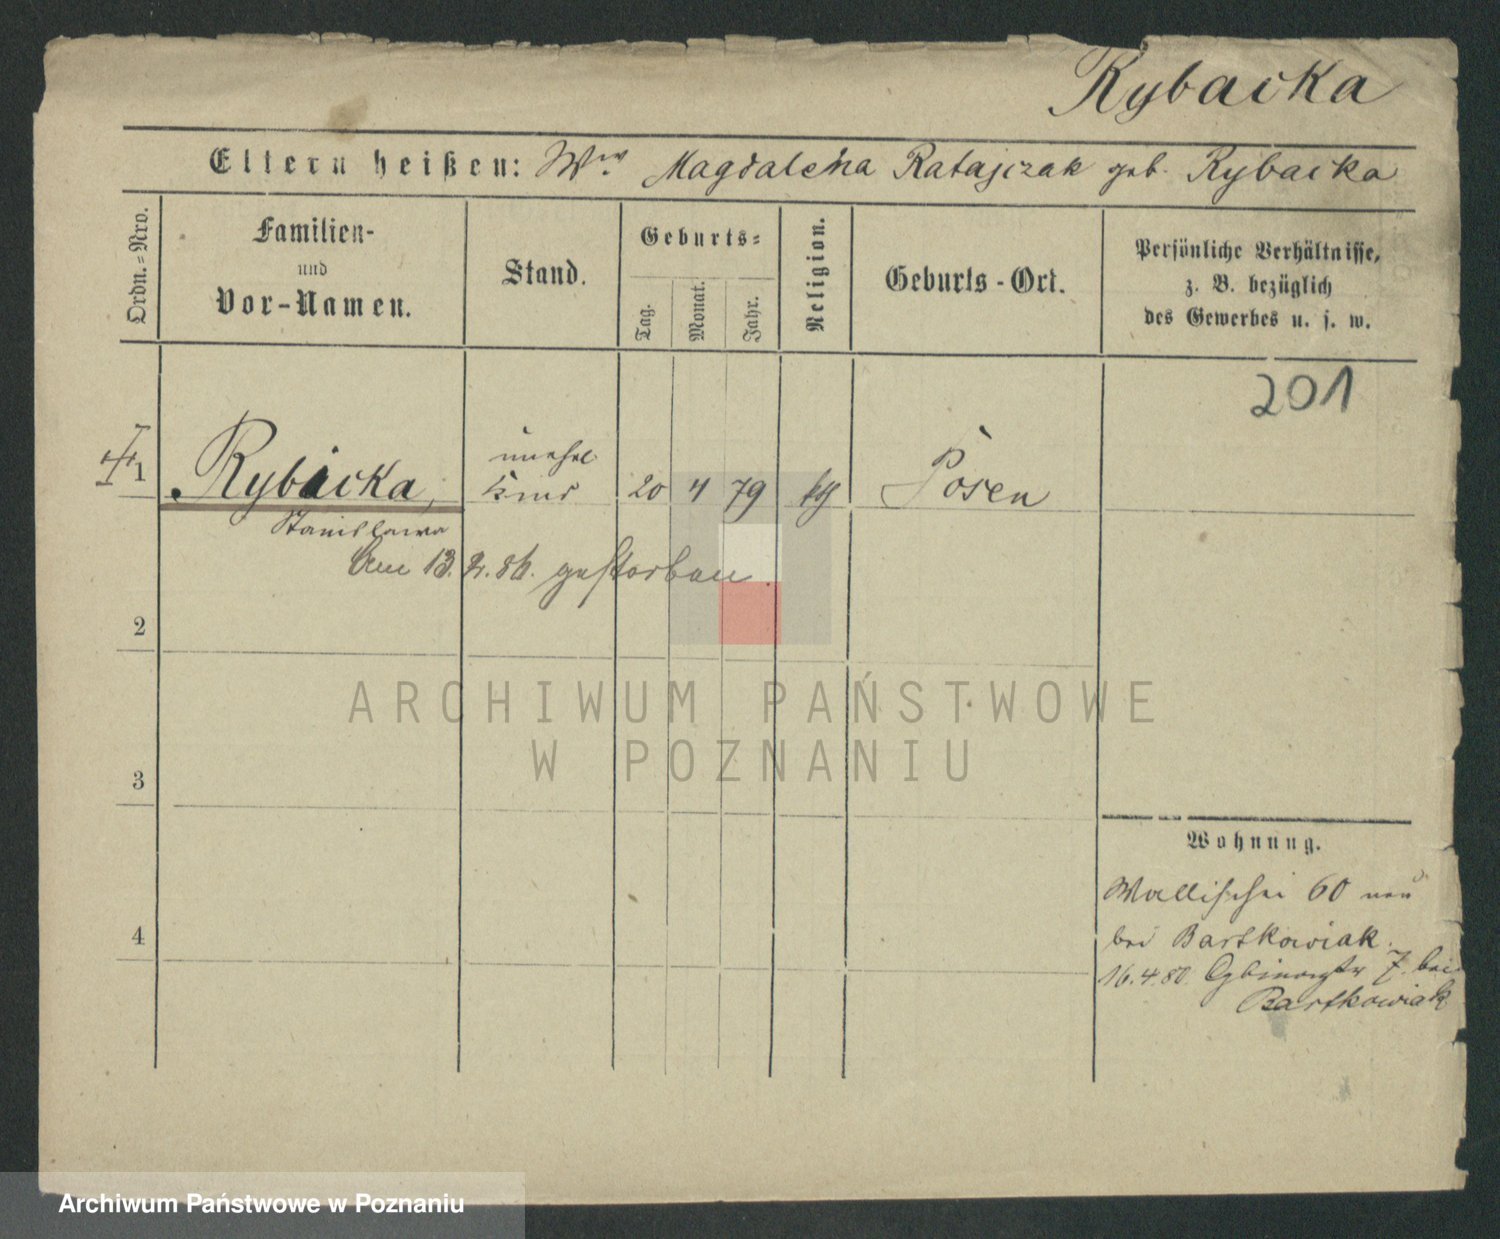 Rybacka
Eltern heißen: Wwe Magdalena Ratajczak geb. Rybacka
Ordn.=Nro.
Familien-
und
Vor-Namen.
Stand.
Geburts=
Tag.
Monat.
Jahr.
Religion.
Geburts-Ort.
Persönliche Verhältnisse,
z. B. bezüglich
des Gewerbes u. s. w.
201
1 Rybacka, unehel. Kind 20 4 79 kth Posen
Stanislawa
Am 13. 2. 86. gestorben.
2
3
4
Wohnung.
Wallischei 60 neu
bei Bartkowiak.
16.4.80. 7. bei
Bartkowiak
ARCHIWUM PAŃSTWOWE
W POZNANIU
Archiwum Państwowe w Poznaniu